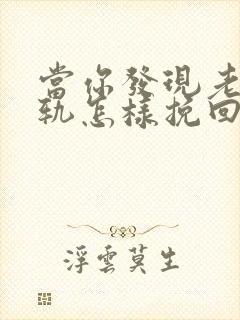 當你發現老
軌怎樣挽回
浮雲莫生